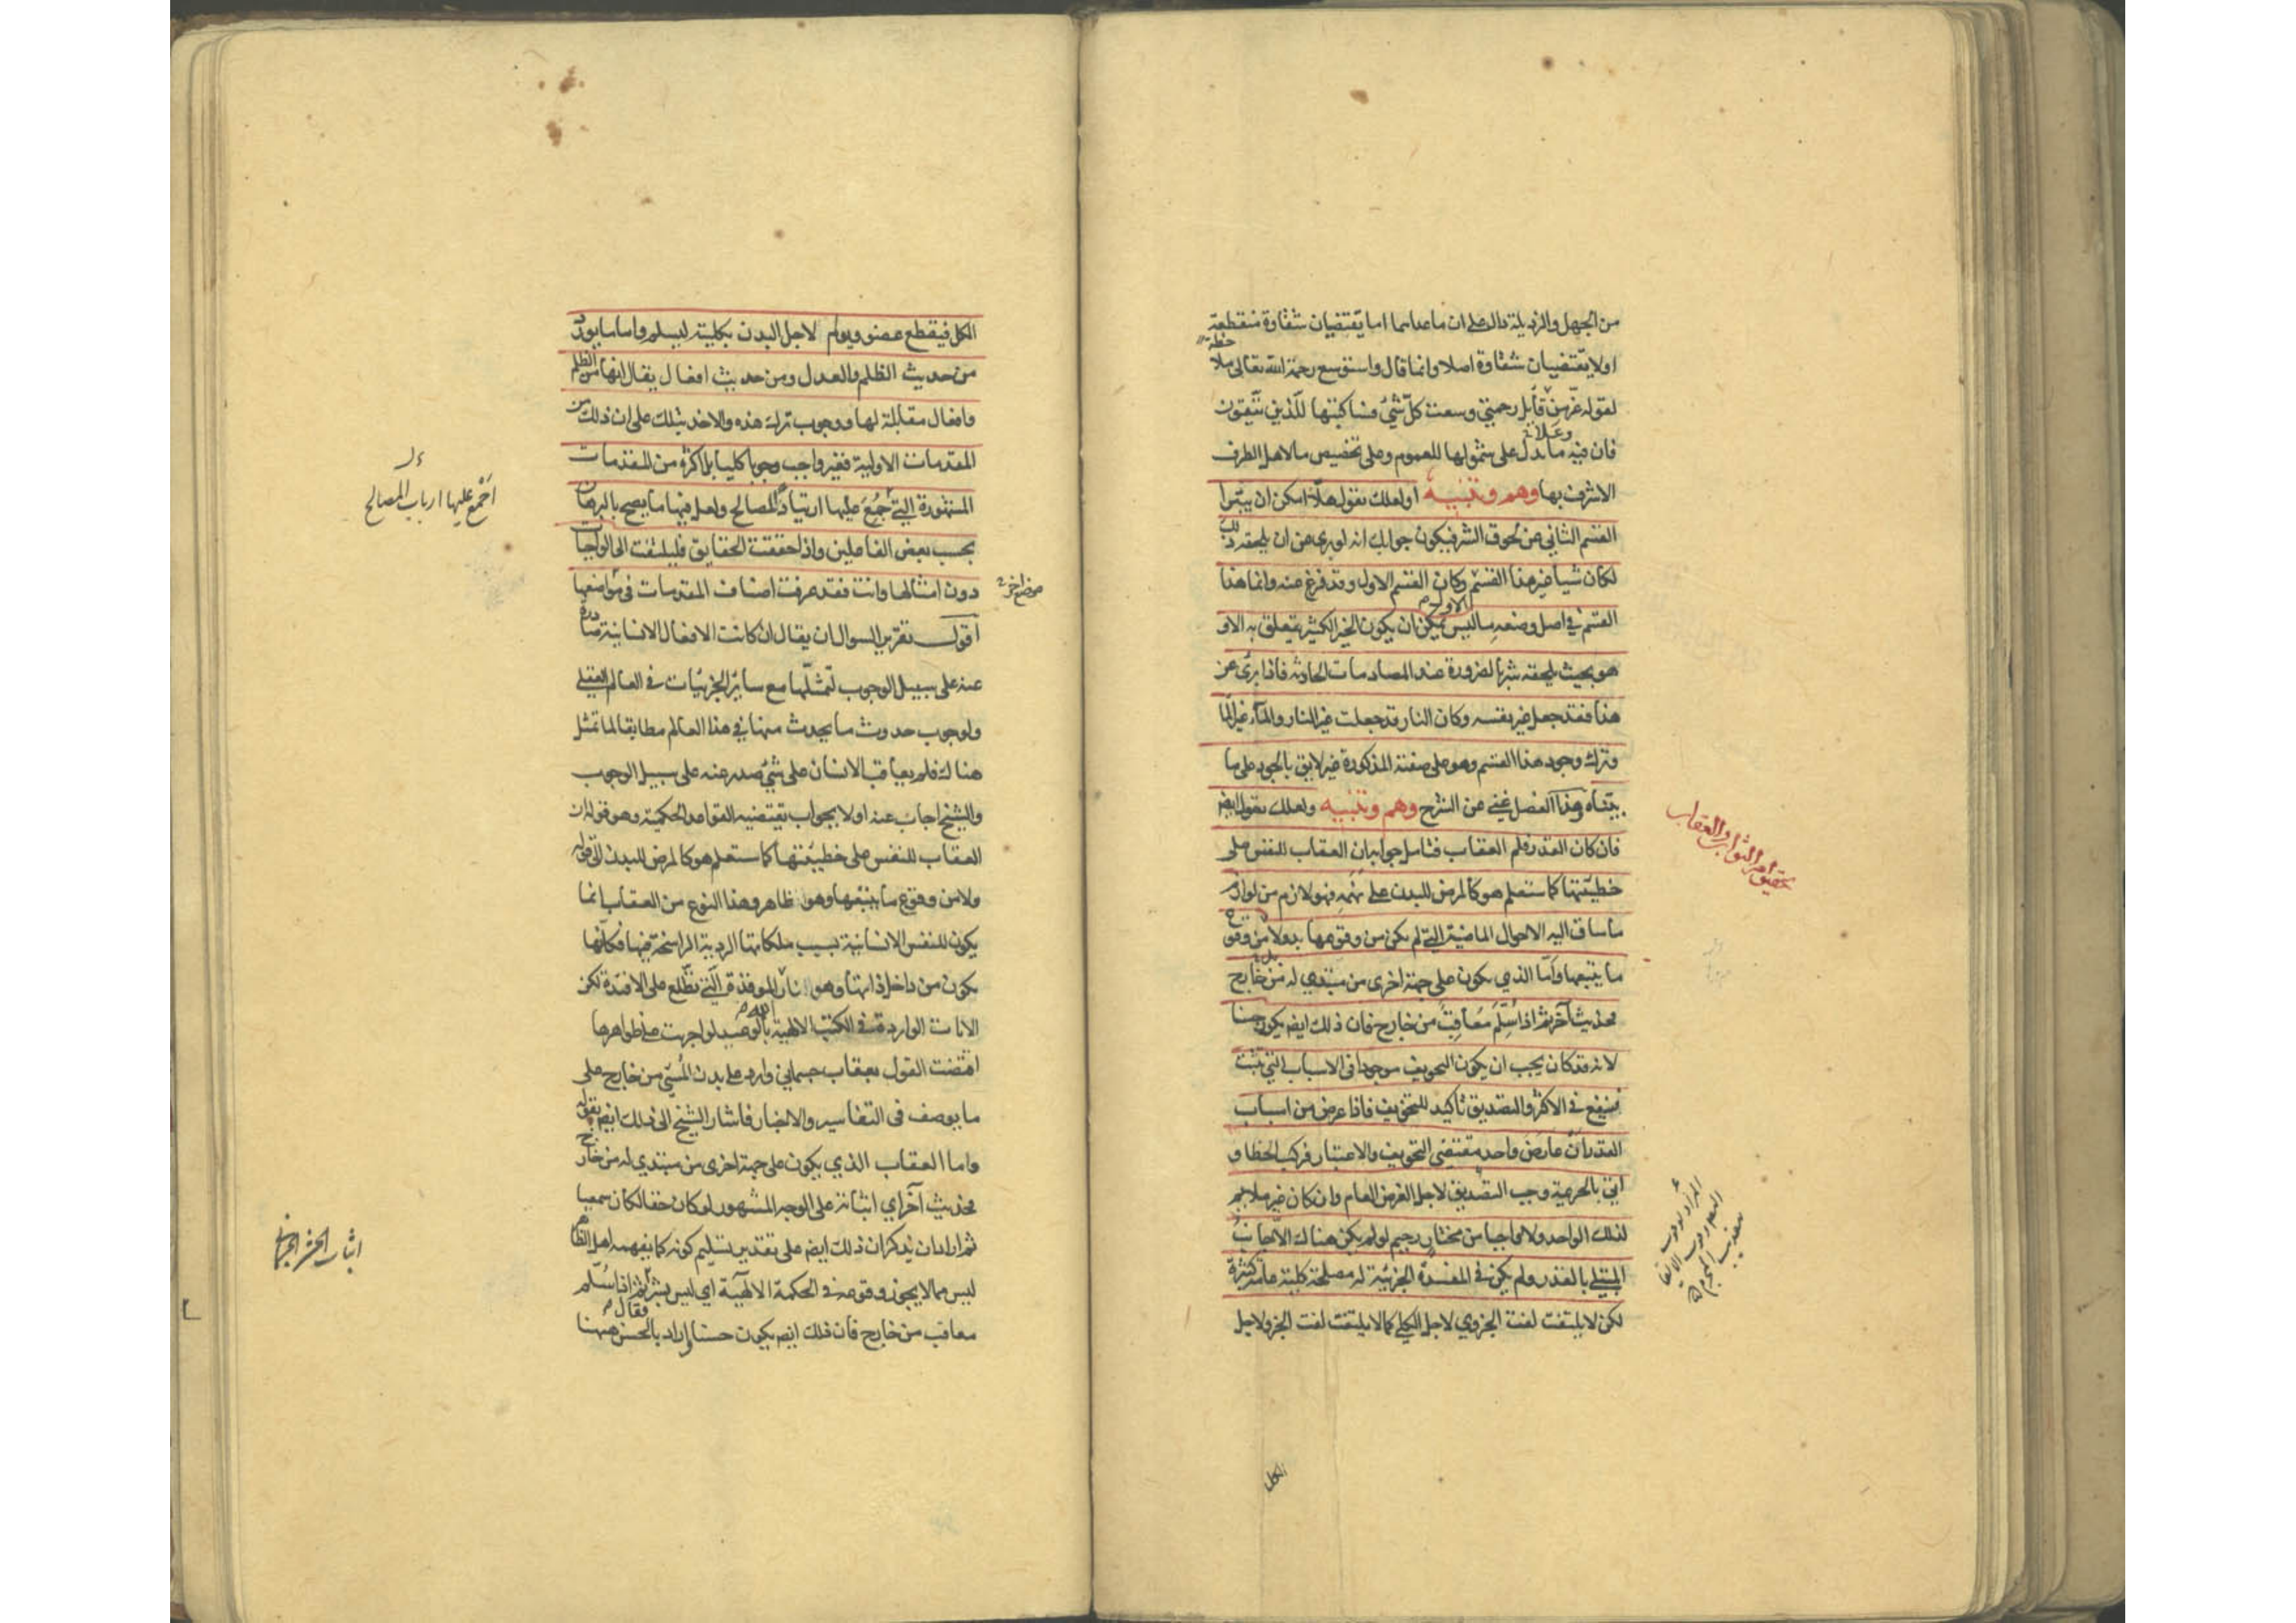 من الجهل والرذيلة دال على ان ماعداهما اما يقتضيان شقاوة منقطعة
اولا يقتضيان شقاوة اصلا وانما قال واستوسع رحمة الله تعالى
لقوله عز من قايل رحمتي وسعت كل شئ فساكتبها للذين يتقون
وعلا
فان فيه ما دل على شمولها للعموم وعلى تخصيص ما لاهل الطرف
الاشرف بها وهم وتنبيه او لعلك تقول هلا امكن ان يتبرا
القسم الثاني عن لحوق الشر فيكون جوابك انه لو برى عن ان يلحقه ذلك
لكان شيا غير هذا القسم وكان القسم الاول وقد فرغ عنه وانما هذا
القسم في اصل وضعه مما ليس يمكن ان يكون الخير الكثير يتعلق به الا و
هو بحيث يلحقه شر بالضرورة عند المصادمات الحادثة فاذا برئ عن
هذا فقد جعل غير نفسه وكان النار قد جعلت غير النار والماء غير الماء
وترك وجود هذا القسم وهو على صفته المذكورة غير لايق بالجود على ما
بيناه وهذا الفصل غني عن الشرح وهم وتنبيه ولعلك تقول ايضا
فان كان القدر فلم العقاب فتامل جوابه ان العقاب للنفس على
خطيئتها كما ستعلم هو كالمرض للبدن على نهمه فهو لازم من لوازم
ما ساق اليه الاحوال الماضية التي لم يكن من وقوعها بد ولا من وقوع
ما يتبعها واما الذي يكون على جهة اخرى من مبتدي له من خارج
فحديث آخر ثم اذا سلم معاقب من خارج فان ذلك ايضا يكون حسنا
لانه قد كان يجب ان يكون التخويف موجودا في الاسباب التي تثبت
فينفع في الاكثر والتصديق تاكيد للتخويف فاذا عرض من اسباب
القدر ان عارض واحد مقتضى التخويف والاعتبار فركب الخطا و
اتى بالجريمة وجب التصديق لاجل الغرض العام وان كان غير ملايم
لذلك الواحد ولا واجبا من مختار رحيم لو لم يكن هناك الا جانب
المبتلى بالقدر ولم يكن في المفسدة الجزئية له مصلحة كلية عامة كثيرة
لكن لا يلتفت لفت الجزوي لاجل الكلي كما لا يلتفت لفت الجزو لاجل
الكل
الكل فيقطع عضو ويولم لاجل البدن بكليته ليسلم واما ما يورد
من حديث الظلم والعدل ومن حديث افعال يقال انها من الظلم
وافعال مقابلة لها ووجوب ترك هذه والاخذ بتلك على ان ذلك من
المقدمات الاولية فغير واجب وجوبا كليا بل اكثره من المقدمات
المشهورة التي جمع عليها ارتياد المصالح ولعل فيها ما يصح بالبرهان
اجمع عليها ارباب المصالح
بحسب بعض الفاعلين واذا حققت الحقايق فليلتفت الى الواجبات
دون امثالها وانت فقد عرفت اصناف المقدمات في مواضعها
اقول تقرير السوال ان يقال ان كانت الافعال الانسانية صادرة
عنه على سبيل الوجوب لتمثلها مع سائر الجزئيات في العالم العقلي
ولوجوب حدوث ما يحدث منها في هذا العالم مطابقا لما تمثل
هناك فلم يعاقب الانسان على شئ صدر عنه على سبيل الوجوب
والشيخ اجاب عنه اولا بجواب يقتضيه القواعد الحكمية وهو قوله ان
العقاب للنفس على خطيئتها كما ستعلم هو كالمرض للبدن الى قوله
ولا من وقوع ما يتبعها وهو ظاهر وهذا النوع من العقاب انما
يكون للنفس الانسانية بسبب ملكاتها الردية الراسخة فيها فكانها
يكون من داخل ذاتها وهو نار الله الموقدة التي تطلع على الافئدة لكن
الايات الواردة في الكتب الالهية بالوعيد لو اجريت على ظواهرها
اقتضت القول بعقاب جسماني وارد على بدن المسئ من خارج على
ما يوصف في التفاسير والاخبار فاشار الشيخ الى ذلك ايضا بقوله
واما العقاب الذي يكون على جهة اخرى من مبتدي له من خارج
فحديث آخر اي اثباته على الوجه المشهور لو كان حقا لكان سمعيا
ثم اراد ان يذكر ان ذلك ايضا على تقدير تسليم كونه كما يفهمه اهل الظاهر
ليس مما لا يجوز وقوعه في الحكمة الالهية اي ليس بشر فقال ثم اذا سلم
معاقب من خارج فان ذلك ايضا يكون حسنا واراد بالحسن ههنا